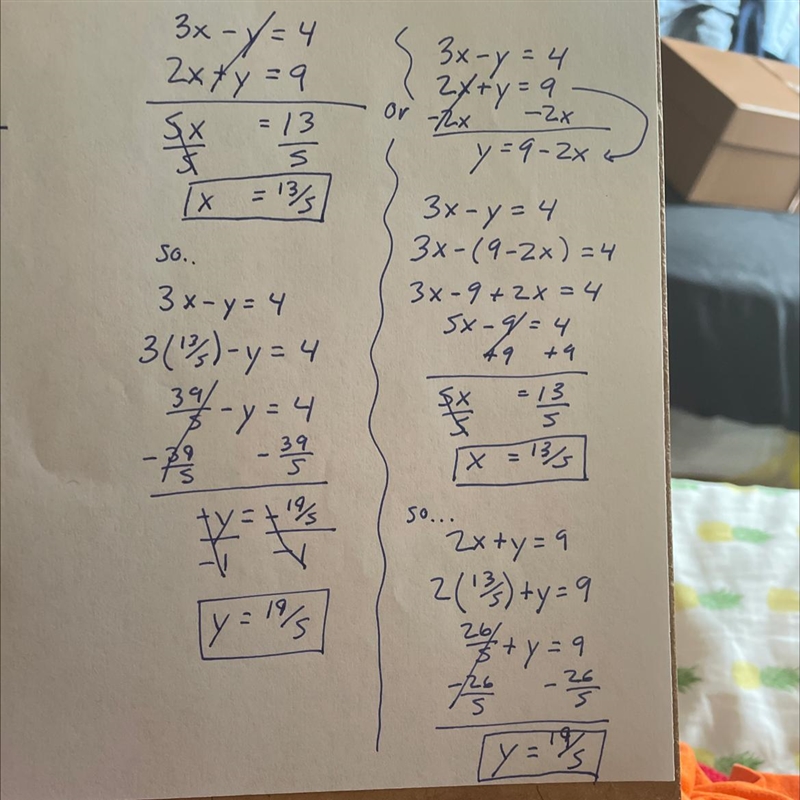 3x - y = 4
2x + y = 9
5x = 13
5 5
x = 13/5
so..
3x - y = 4
3(13/5) - y = 4
39/5 - y = 4
-39/5 -39/5
-y = -19/5
-1 -1
y = 19/5
or
3x - y = 4
2x + y = 9
-2x -2x
y = 9 - 2x
3x - y = 4
3x - (9 - 2x) = 4
3x - 9 + 2x = 4
5x - 9 = 4
+9 +9
5x = 13
5 5
x = 13/5
so...
2x + y = 9
2(13/5) + y = 9
26/5 + y = 9
-26/5 -26/5
y = 19/5